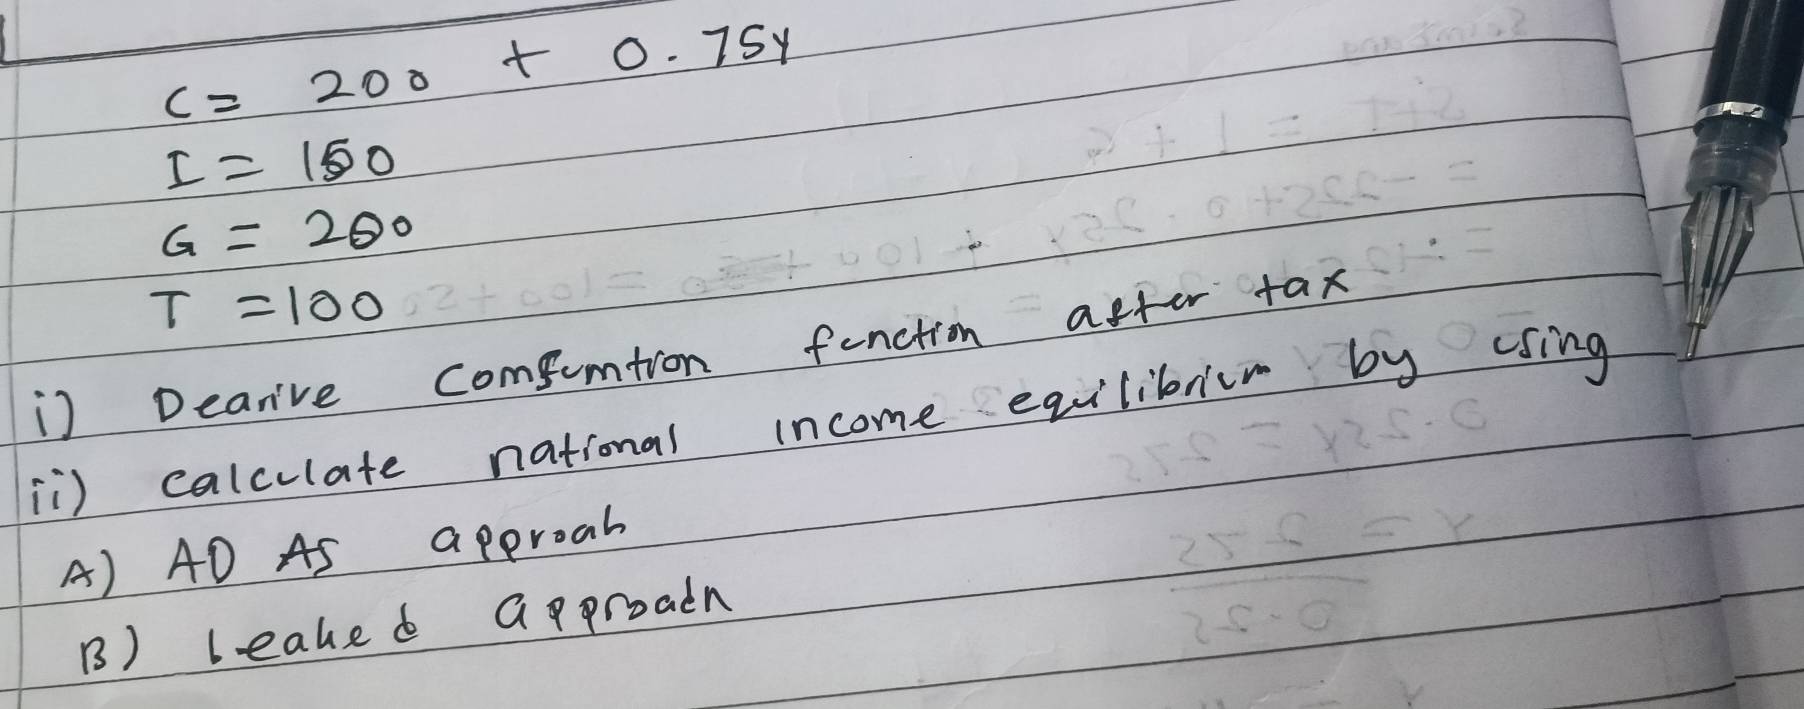 C = 200 + 0.75Y
I = 150
G = 200
T = 100
i) Dearive Comsumtion function after tax
ii) calculate national income equilibrium by using
A) AD AS approah
B) Leaked approach